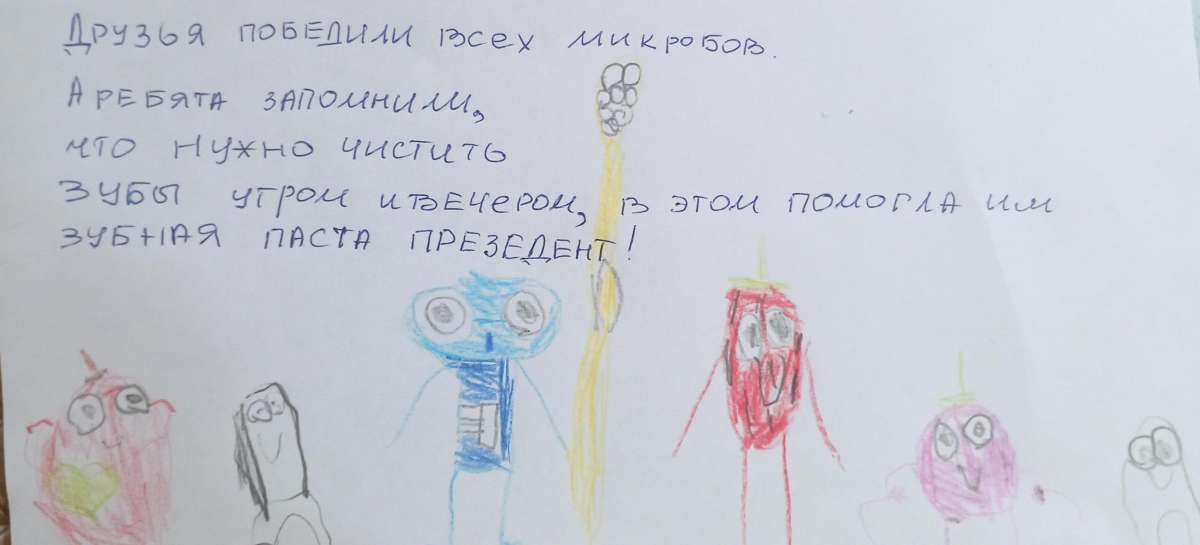 ДРУЗЬЯ ПОБЕДИЛИ ВСЕХ МИКРОБОВ.
А РЕБЯТА ЗАПОМНИЛИ,
ЧТО НУЖНО ЧИСТИТЬ
ЗУБЫ УТРОМ И ВЕЧЕРОМ, В ЭТОМ ПОМОГЛА ИМ
ЗУБНАЯ ПАСТА ПРЕЗЕДЕНТ!